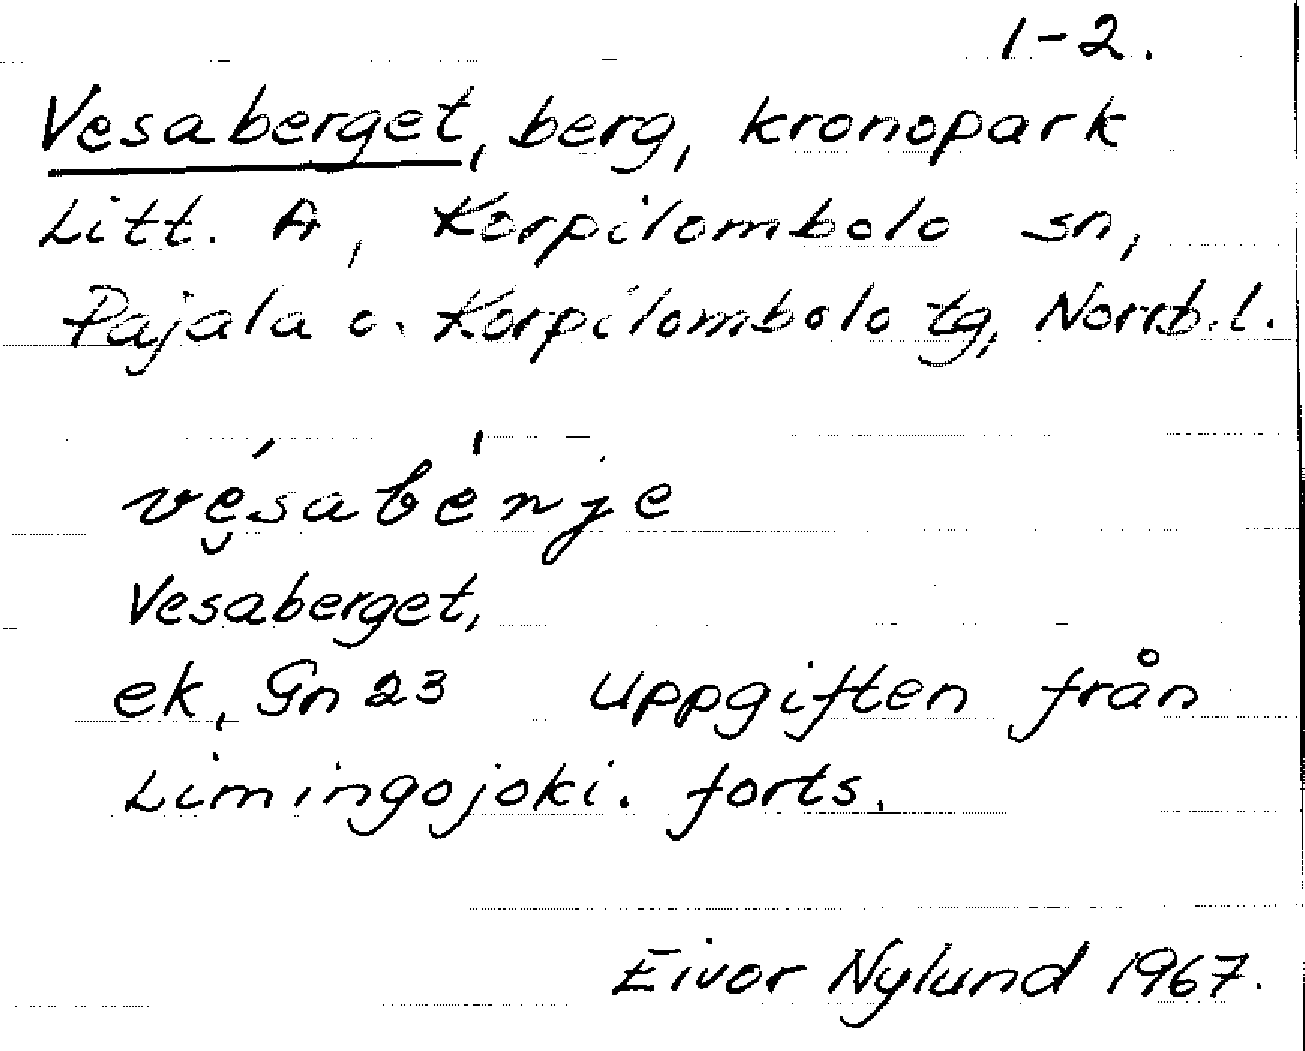 1-2.
Vesaberget, berg, kronopark
Litt. A, Korpilombolo sn,
Pajala o. Korpilombolo tg, Norrb.l.
vé̮sabènje
Vesaberget,
ek, Gn 23 Uppgiften från
Limingojoki. forts.
Eivor Nylund 1967.